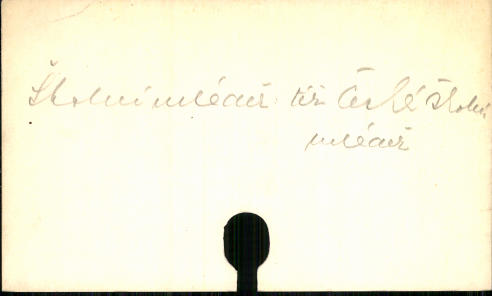 Školní mládež viz České školní
mládež